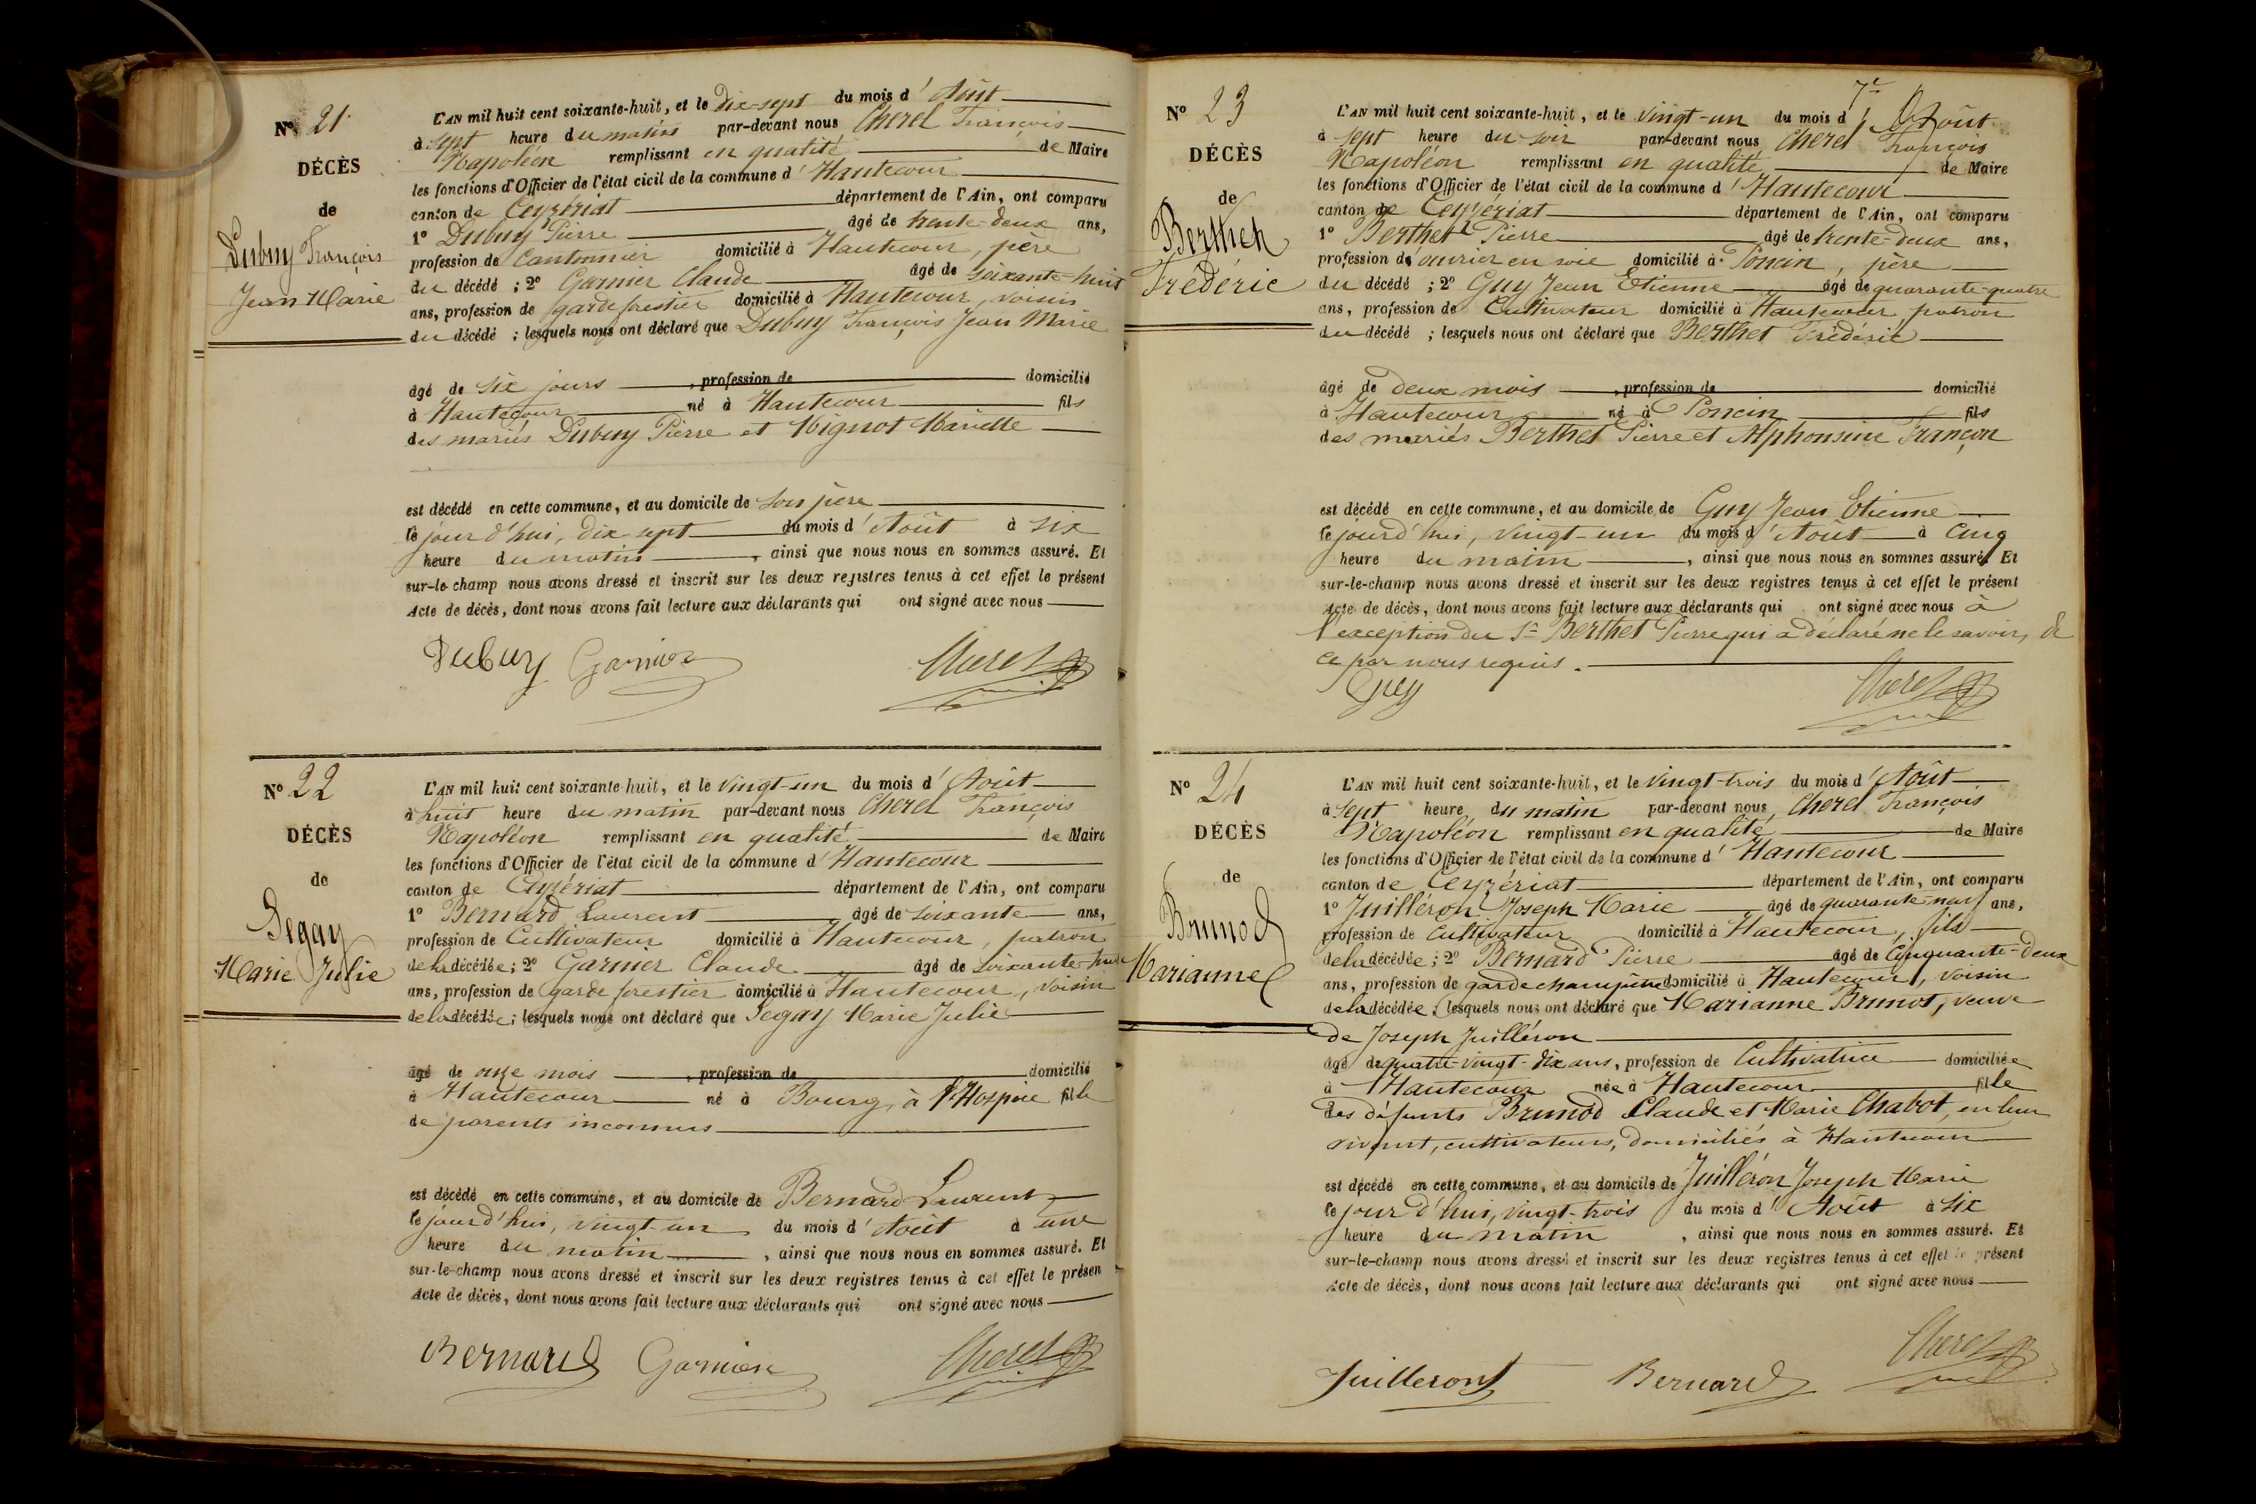 N° 21
DÉCÈS
de
Dubuy François
Jean Marie
L'AN mil huit cent soixante-huit, et le dix-sept du mois d'Août
à sept heure du matin par-devant nous Cherel François
Napoléon remplissant en qualité de Maire
les fonctions d'Officier de l'état civil de la commune d'Hautecour
canton de Ceyzériat département de l'Ain, ont comparu
1° Dubuy Pierre âgé de trente-deux ans,
profession de Cantonnier domicilié à Hautecour, père
du décédé ; 2° Garnier Claude âgé de soixante-huit
ans, profession de garde forestier domicilié à Hautecour, voisin
du décédé ; lesquels nous ont déclaré que Dubuy François Jean Marie
âgé de six jours , profession de domicilié
à Hautecour né à Hautecour fils
des mariés Dubuy Pierre et Mignot Mariette
est décédé en cette commune, et au domicile de son père
le jour d'hui, dix sept du mois d'Août à six
heure du matin , ainsi que nous nous en sommes assuré. Et
sur-le-champ nous avons dressé et inscrit sur les deux registres tenus à cet effet le présent
Acte de décès, dont nous avons fait lecture aux déclarants qui ont signé avec nous
Dubuy Garnier Cherel
N° 22
DÉCÈS
de
Segay
Marie Julie
L'AN mil huit cent soixante-huit, et le vingt-un du mois d'Août
à huit heure du matin par-devant nous Cherel François
Napoléon remplissant en qualité de Maire
les fonctions d'Officier de l'état civil de la commune d'Hautecour
canton de Ceyzériat département de l'Ain, ont comparu
1° Bernard Laurent âgé de soixante ans,
profession de Cultivateur domicilié à Hautecour, patron
de la décédée ; 2° Garnier Claude âgé de soixante-huit
ans, profession de garde forestier domicilié à Hautecour, voisin
de la décédée ; lesquels nous ont déclaré que Segay Marie Julie
âgé de onze mois , profession de domicilié
à Hautecour né à Bourg, à l'Hospice fille
de parents inconnus
est décédé en cette commune, et au domicile de Bernard Laurent
le jour d'hui, vingt-un du mois d'Août à une
heure du matin , ainsi que nous nous en sommes assuré. Et
sur-le-champ nous avons dressé et inscrit sur les deux registres tenus à cet effet le présen
Acte de décès, dont nous avons fait lecture aux déclarants qui ont signé avec nous
Bernard Garnier Cherel
N° 23
DÉCÈS
de
Berthet
Frédéric
7e
L'AN mil huit cent soixante-huit, et le vingt-un du mois d'Août
à sept heure du soir par-devant nous Cherel François
Napoléon remplissant en qualité de Maire
les fonctions d'Officier de l'état civil de la commune d'Hautecour
canton de Ceyzériat département de l'Ain, ont comparu
1° Berthet Pierre âgé de trente-deux ans,
profession d'ouvrier en soie domicilié à Poncin, père
du décédé ; 2° Guy Jean Etienne âgé de quarante-quatre
ans, profession de Cultivateur domicilié à Hautecour patron
du décédé ; lesquels nous ont déclaré que Berthet Frédéric
âgé de deux mois , profession de domicilié
à Hautecour né à Poncin fils
des mariés Berthet Pierre et Alphonsine Françon
est décédé en cette commune, et au domicile de Guy Jean Etienne
le jourd'hui, vingt-un du mois d'Août à cinq
heure du matin , ainsi que nous nous en sommes assuré. Et
sur-le-champ nous avons dressé et inscrit sur les deux registres tenus à cet effet le présent
Acte de décès, dont nous avons fait lecture aux déclarants qui ont signé avec nous à
l'exception du Sr Berthet Pierre qui a déclaré ne le savoir, de
ce par nous requis.
Guy Cherel
N° 24
DÉCÈS
de
Brunod
Marianne
L'AN mil huit cent soixante-huit, et le vingt-trois du mois d'Août
à sept heure du matin par-devant nous Cherel François
Napoléon remplissant en qualité de Maire
les fonctions d'Officier de l'état civil de la commune d'Hautecour
canton de Ceyzériat département de l'Ain, ont comparu
1° Juilléron Joseph Marie âgé de quarante-neuf ans,
profession de Cultivateur domicilié à Hautecour, fils
de la décédée ; 2° Bernard Pierre âgé de Cinquante-deux
ans, profession de garde champêtre domicilié à Hautecour, voisin
de la décédée, lesquels nous ont déclaré que Marianne Brunod, veuve
de Joseph Juilléron
âgé de quatre-vingt-dix ans, profession de Cultivatrice domiciliée
à Hautecour née à Hautecour fille
des défunts Brunod Claude et Marie Chabot, en leur
vivant, cultivateurs, domiciliés à Hautecour
est décédé en cette commune, et au domicile de Juilléron Joseph Marie
le jour d'hui, vingt-trois du mois d'Août à six
heure du matin , ainsi que nous nous en sommes assuré. Et
sur-le-champ nous avons dressé et inscrit sur les deux registres tenus à cet effet le présent
Acte de décès, dont nous avons fait lecture aux déclarants qui ont signé avec nous
Juilleront Bernard Cherel